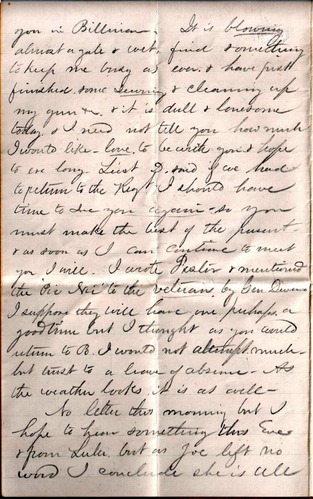 you in Billerica. It is blowing
almost a gale & wet. find something
to keep me busy as ever. & have just
finished some sewing & cleaning up
my gun &c. & it is dull & lonesome
today. & I need not tell you how much
I would like - love. to be with you & hope
to ere long. Lieut D. said if we had
to return to the Regt I should have
time to see you again - so you
must make the best of the present
& as soon as I can contrive to meet
you I will. I wrote & mentioned
the to the veterans. by Gen. Devens
I suppose they will have one, perhaps, a
good time but I thought as you would
return to B. I would not attempt much
but trust to a leave of absence - As
the weather looks it is as well -
No letter this morning but I
hope to hear something this Eve
& from Lule, but as Joe left no
word I conclude she is all